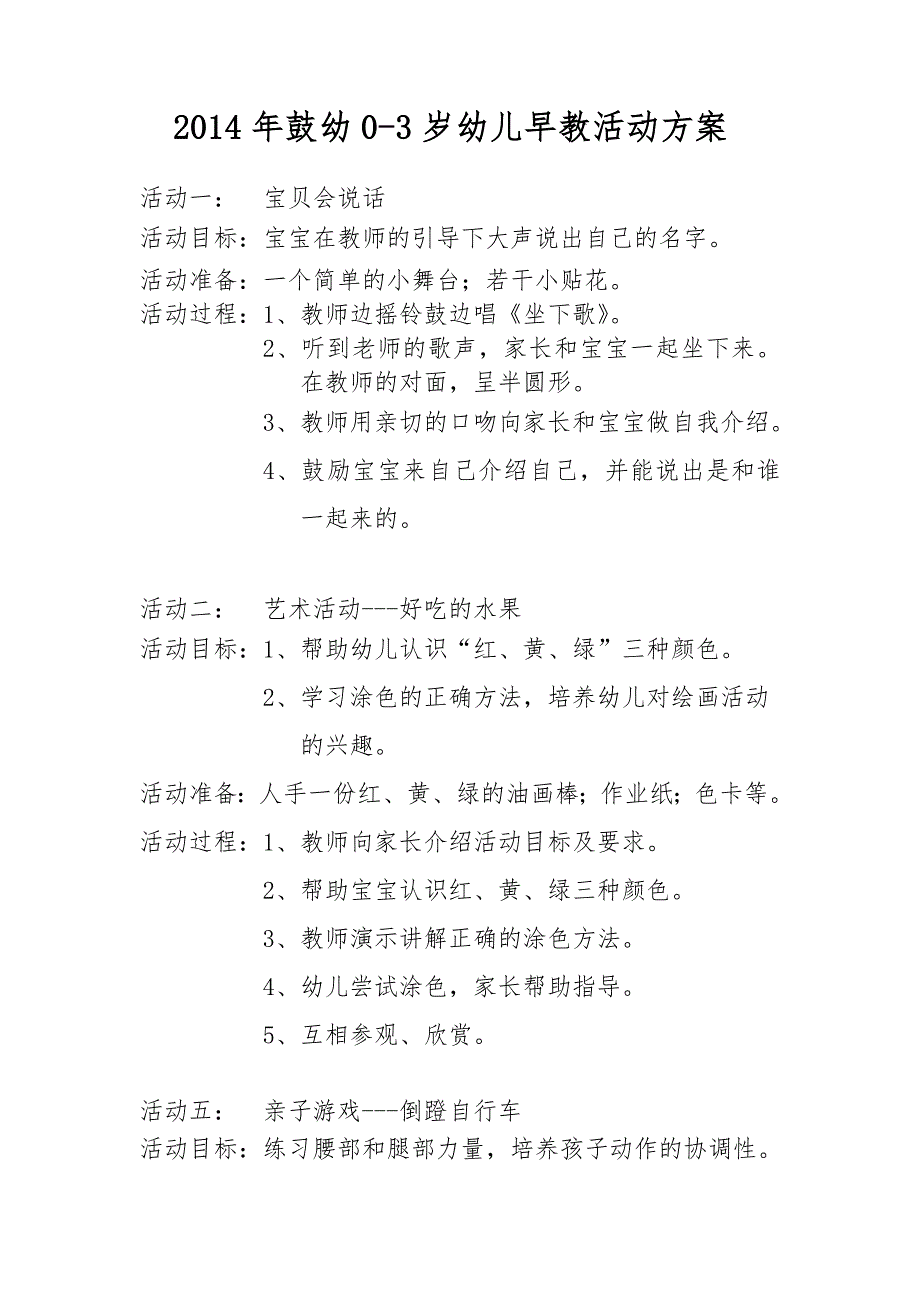 2014年鼓幼0-3岁幼儿早教活动方案
活动一： 宝贝会说话
活动目标：宝宝在教师的引导下大声说出自己的名字。
活动准备：一个简单的小舞台；若干小贴花。
活动过程：1、教师边摇铃鼓边唱《坐下歌》。
2、听到老师的歌声，家长和宝宝一起坐下来。
在教师的对面，呈半圆形。
3、教师用亲切的口吻向家长和宝宝做自我介绍。
4、鼓励宝宝来自己介绍自己，并能说出是和谁
一起来的。
活动二： 艺术活动---好吃的水果
活动目标：1、帮助幼儿认识“红、黄、绿”三种颜色。
2、学习涂色的正确方法，培养幼儿对绘画活动
的兴趣。
活动准备：人手一份红、黄、绿的油画棒；作业纸；色卡等。
活动过程：1、教师向家长介绍活动目标及要求。
2、帮助宝宝认识红、黄、绿三种颜色。
3、教师演示讲解正确的涂色方法。
4、幼儿尝试涂色，家长帮助指导。
5、互相参观、欣赏。
活动五： 亲子游戏---倒蹬自行车
活动目标：练习腰部和腿部力量，培养孩子动作的协调性。